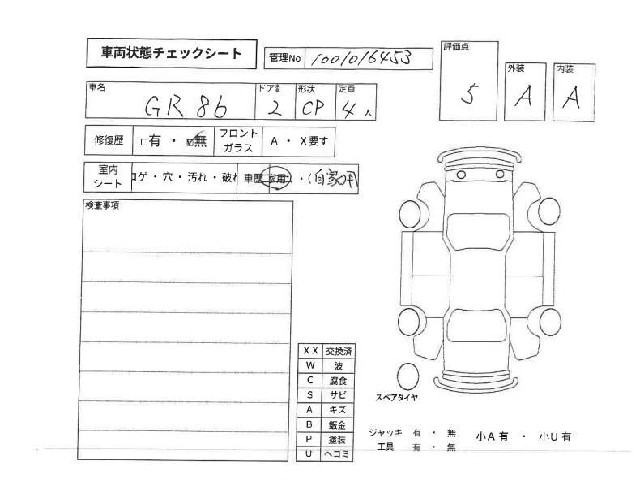 車両状態チェックシート
管理No 1001016453
評価点 5
外装 A
内装 A
車名 GR 86
ドア数 2
形状 CP
定員 4人
修復歴 有 ・ 無
フロントガラス A ・ X要す
室内シート コゲ・穴・汚れ・破れ
車歴 家用 ・ (自家用
検査事項
XX 交換済
W 波
C 腐食
S サビ
A キズ
B 鈑金
P 塗装
U ヘコミ
スペアタイヤ
ジャッキ 有 ・ 無
工具 有 ・ 無
小A有 ・ 小U有